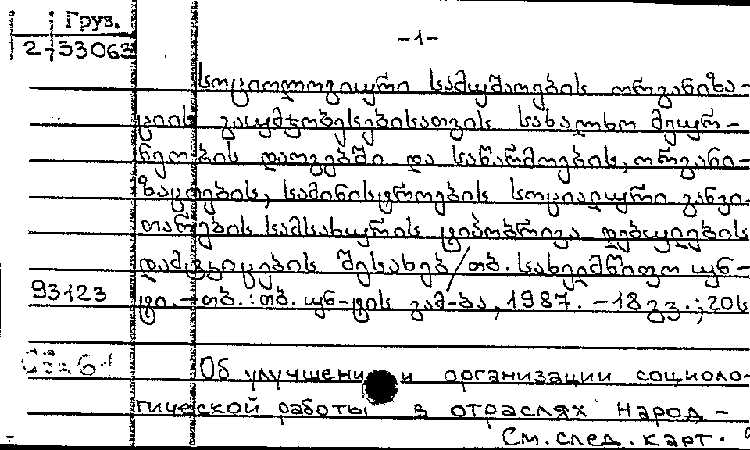 Груз.
2-33063
-1-
სოციოლოგიური სამუშაოების ორგანიზა-
ციის გაუმჯობესებისათვის სახალხო მეურ-
ნეობის დარგებში და საწარმოების, ორგანი-
ზაციების, სამინისტროების სოციალური განვი-
თარების სამსახურის ტიპობრივი დებულების
დამტკიცების შესახებ/თბ. სახელმწიფო უნ-
93123
ტი.-თბ.: თბ. უნ-ტის გამ-ბა, 1987. -18გვ.; 20ს
Об улучшении организации социоло-
гической работы в отраслях народ-
См. след. карт.